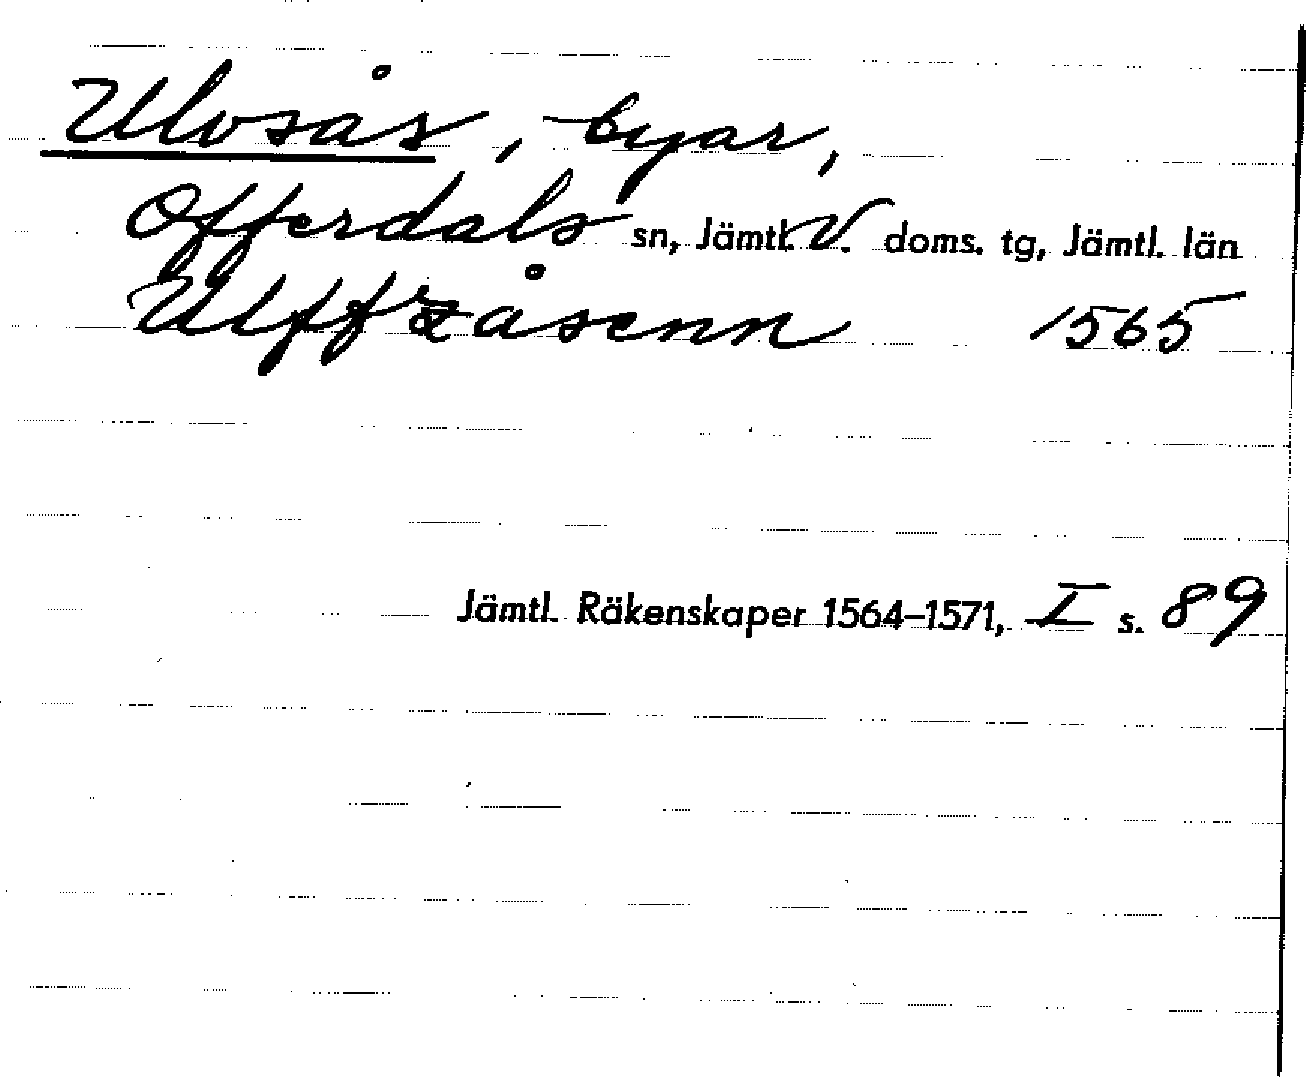 Ulvsås, byar,
Offerdals sn, Jämtl. V. doms. tg, Jämtl. län
Ulffzåsenn 1565
Jämtl. Räkenskaper 1564–1571, I s. 89